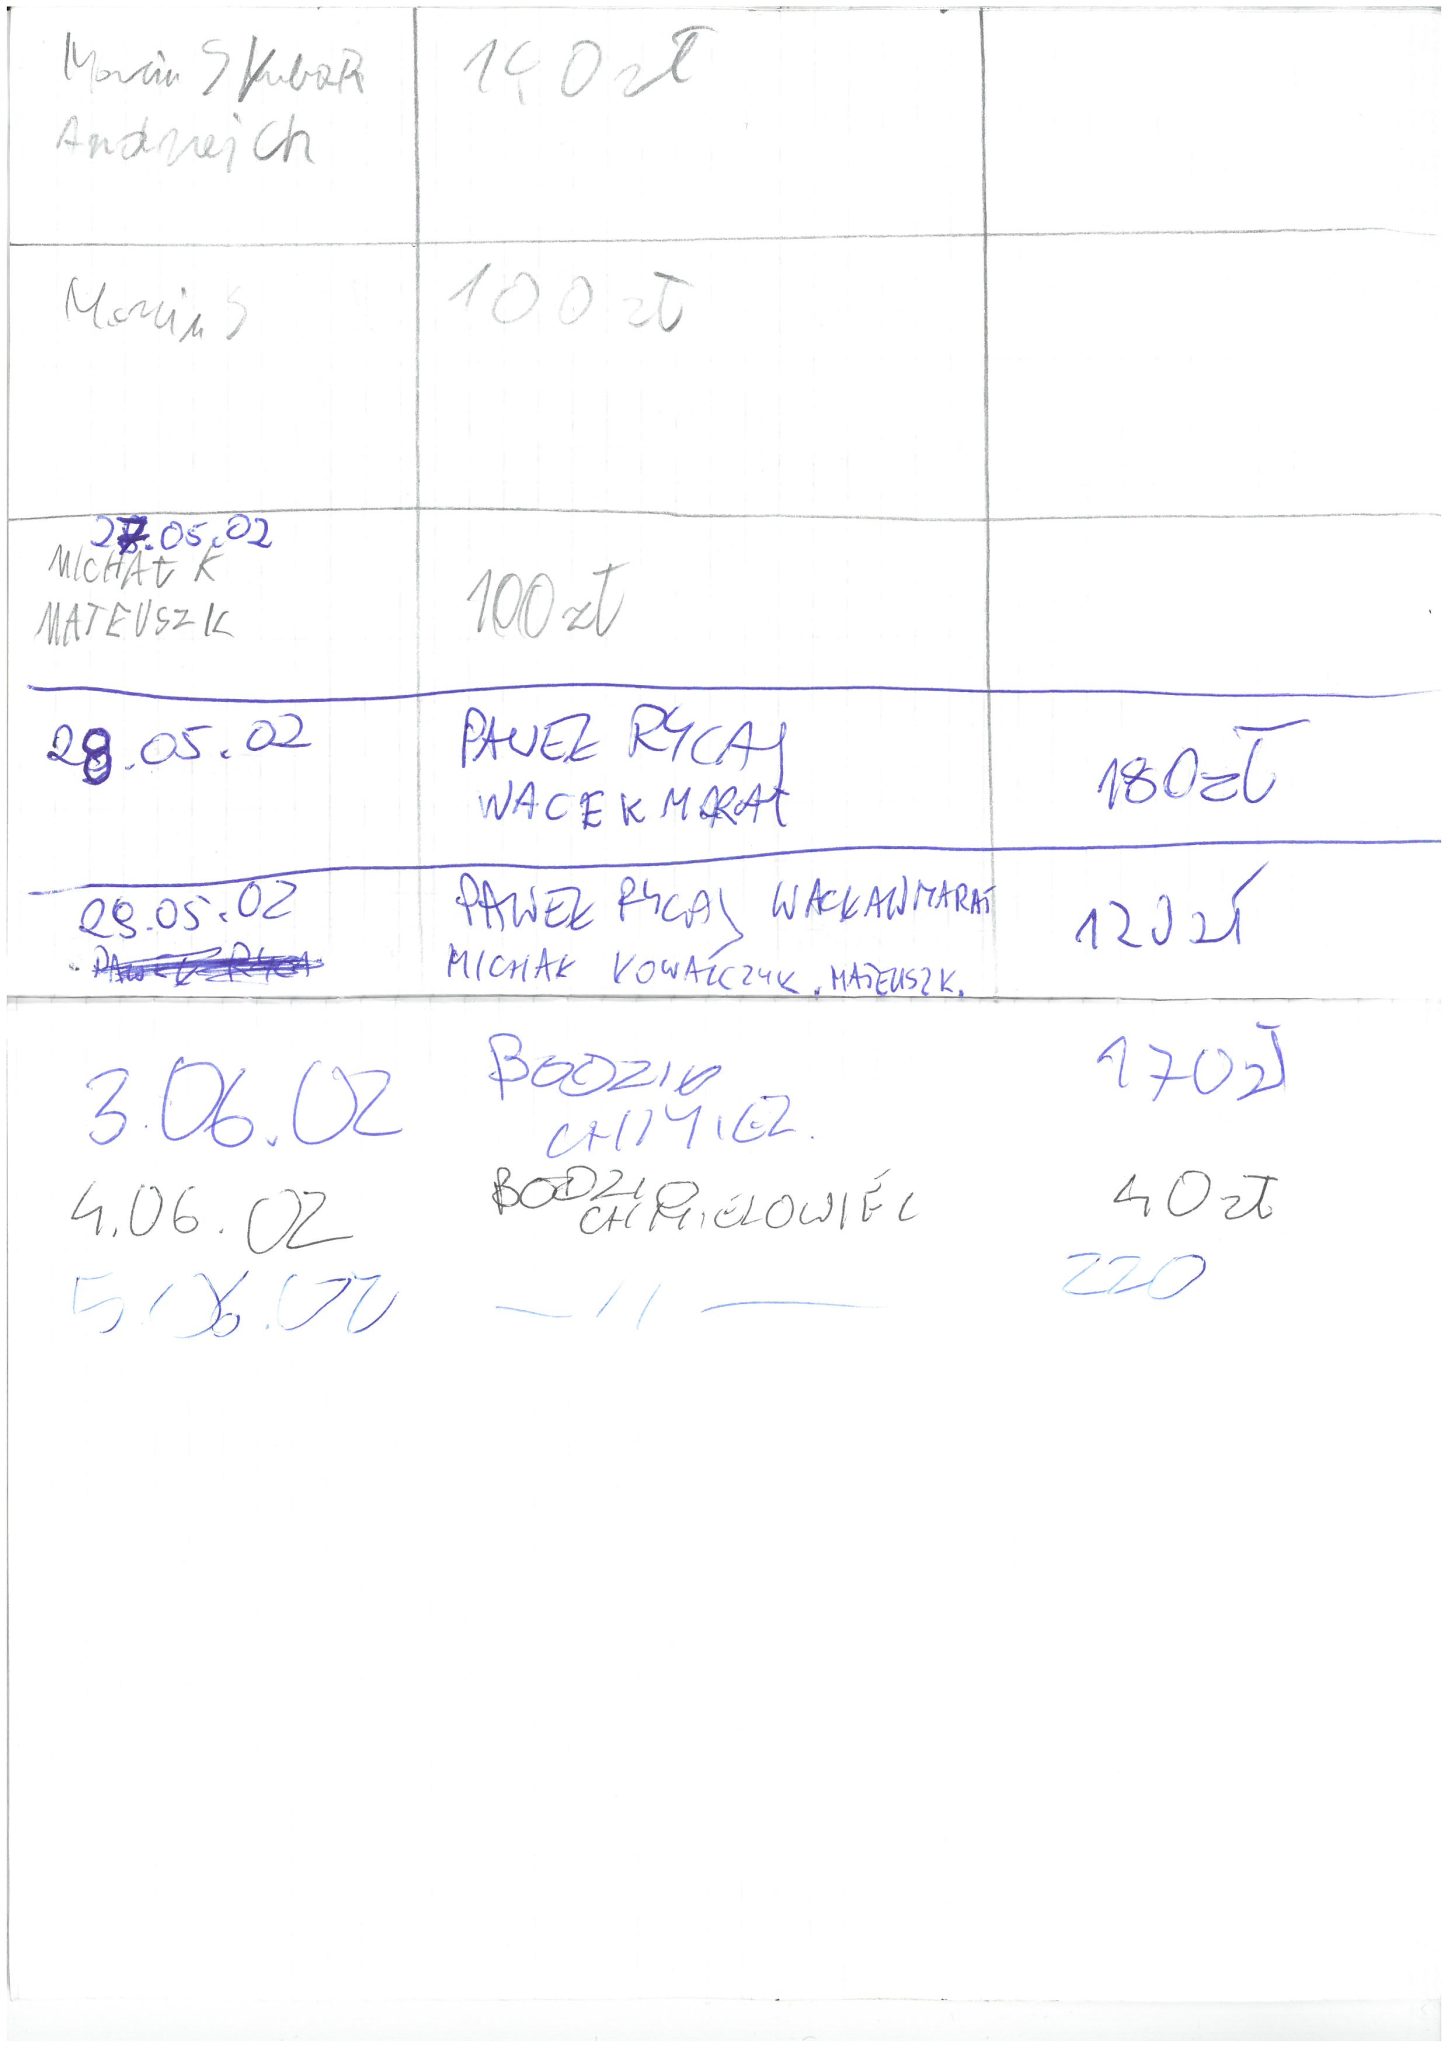 Marcin S Kuba R 140 zł
Andrzej Ch
Marcin S 100 zł
27.05.02
MICHAŁ K
MATEUSZ K 100 zł
28.05.02 PAWEŁ RYCAJ
WACEK MARAT 180 zł
29.05.02 PAWEŁ RYCAJ WACŁAW MARAT 120 zł
PAWEŁ RYCA MICHAŁ KOWALCZYK. MATEUSZ K.
3.06.02 BODZIO 170 zł
CHMIEL.
4.06.02 BODZIO 40 zł
CHMIELOWIEC
5.06.02 — // — 220